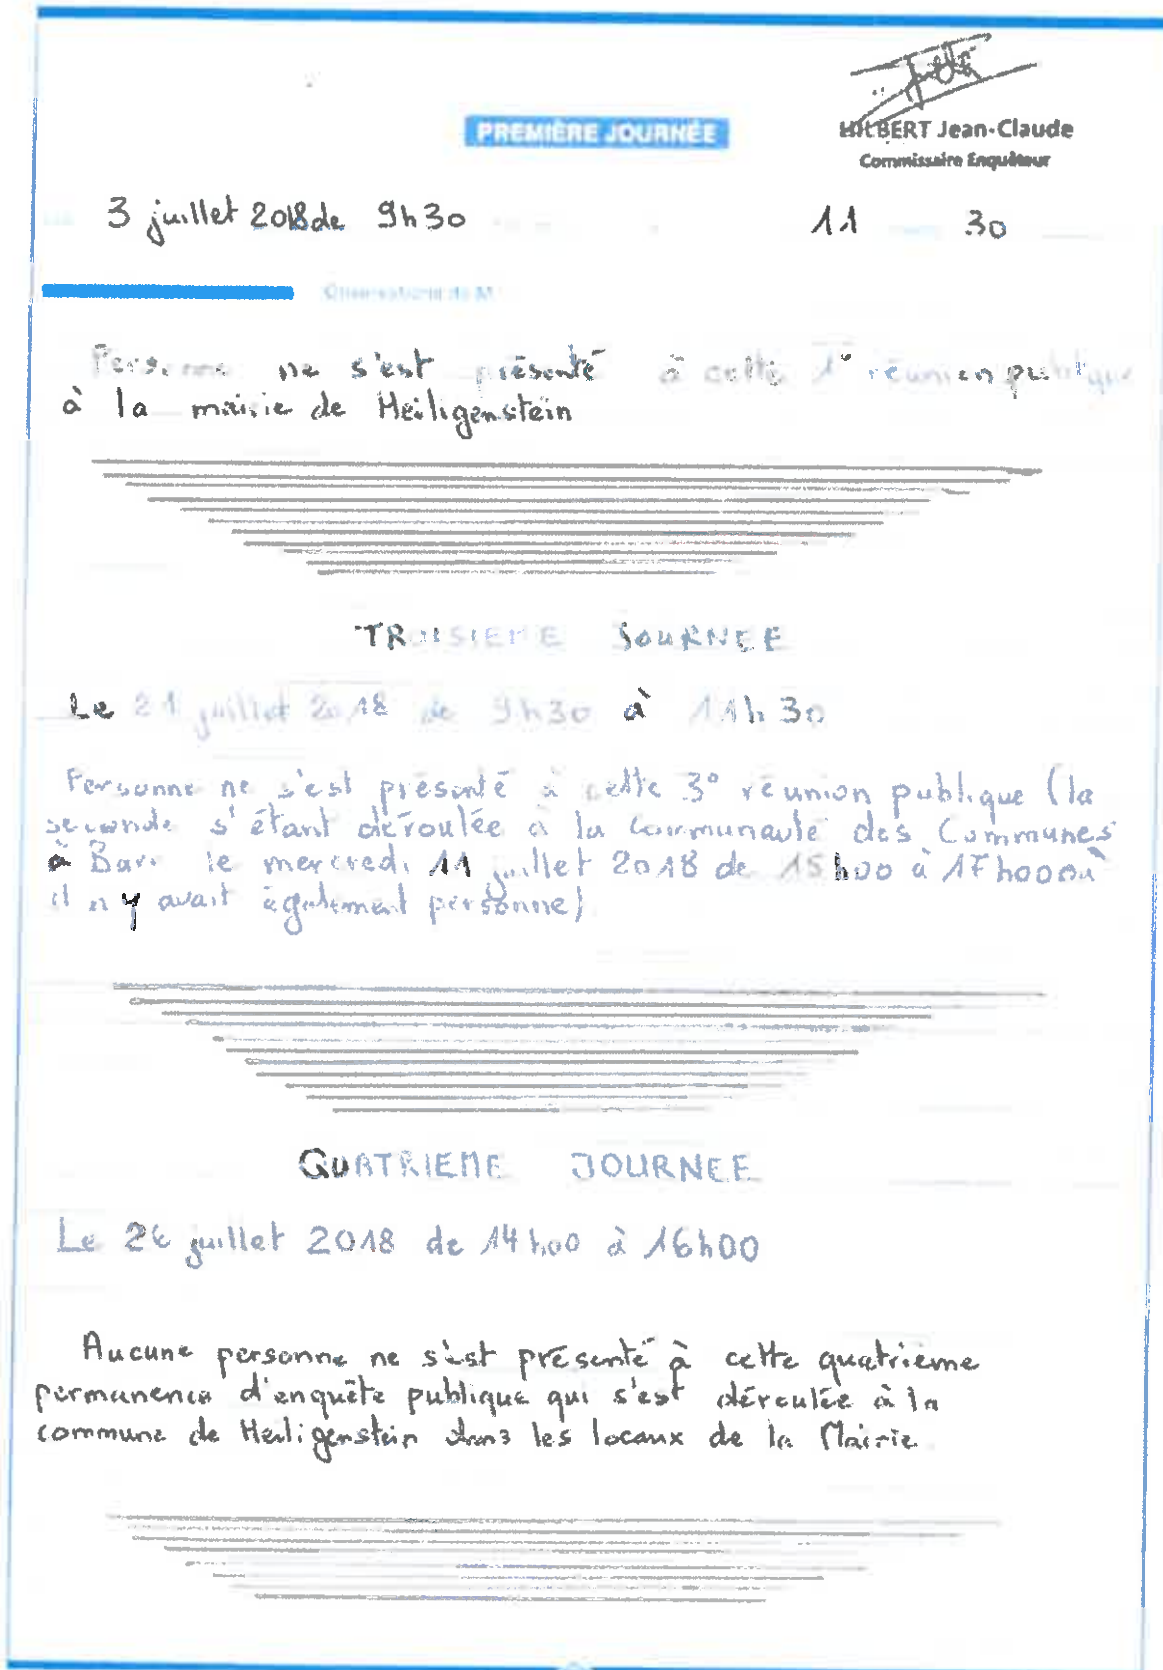 HILBERT Jean-Claude
Commissaire Enquêteur
PREMIÈRE JOURNÉE
3 juillet 2018 de 9h30 11 30
Observations de M
Personne ne s'est présenté à cette 1° réunion publique
à la mairie de Heiligenstein
TROISIEME JOURNEE
Le 21 juillet 2018 de 9h30 à 11h30
Personne ne s'est présenté à cette 3° réunion publique (la
seconde s'étant déroulée à la Communauté des Communes
à Barr le mercredi 11 juillet 2018 de 15h00 à 17h00 où
il n y avait également personne)
QUATRIEME JOURNEE
Le juillet 2018 de 14h00 à 16h00
Aucune personne ne s'est présenté à cette quatrième
permanence d'enquête publique qui s'est déroulée à la
commune de Heiligenstein dans les locaux de la Mairie